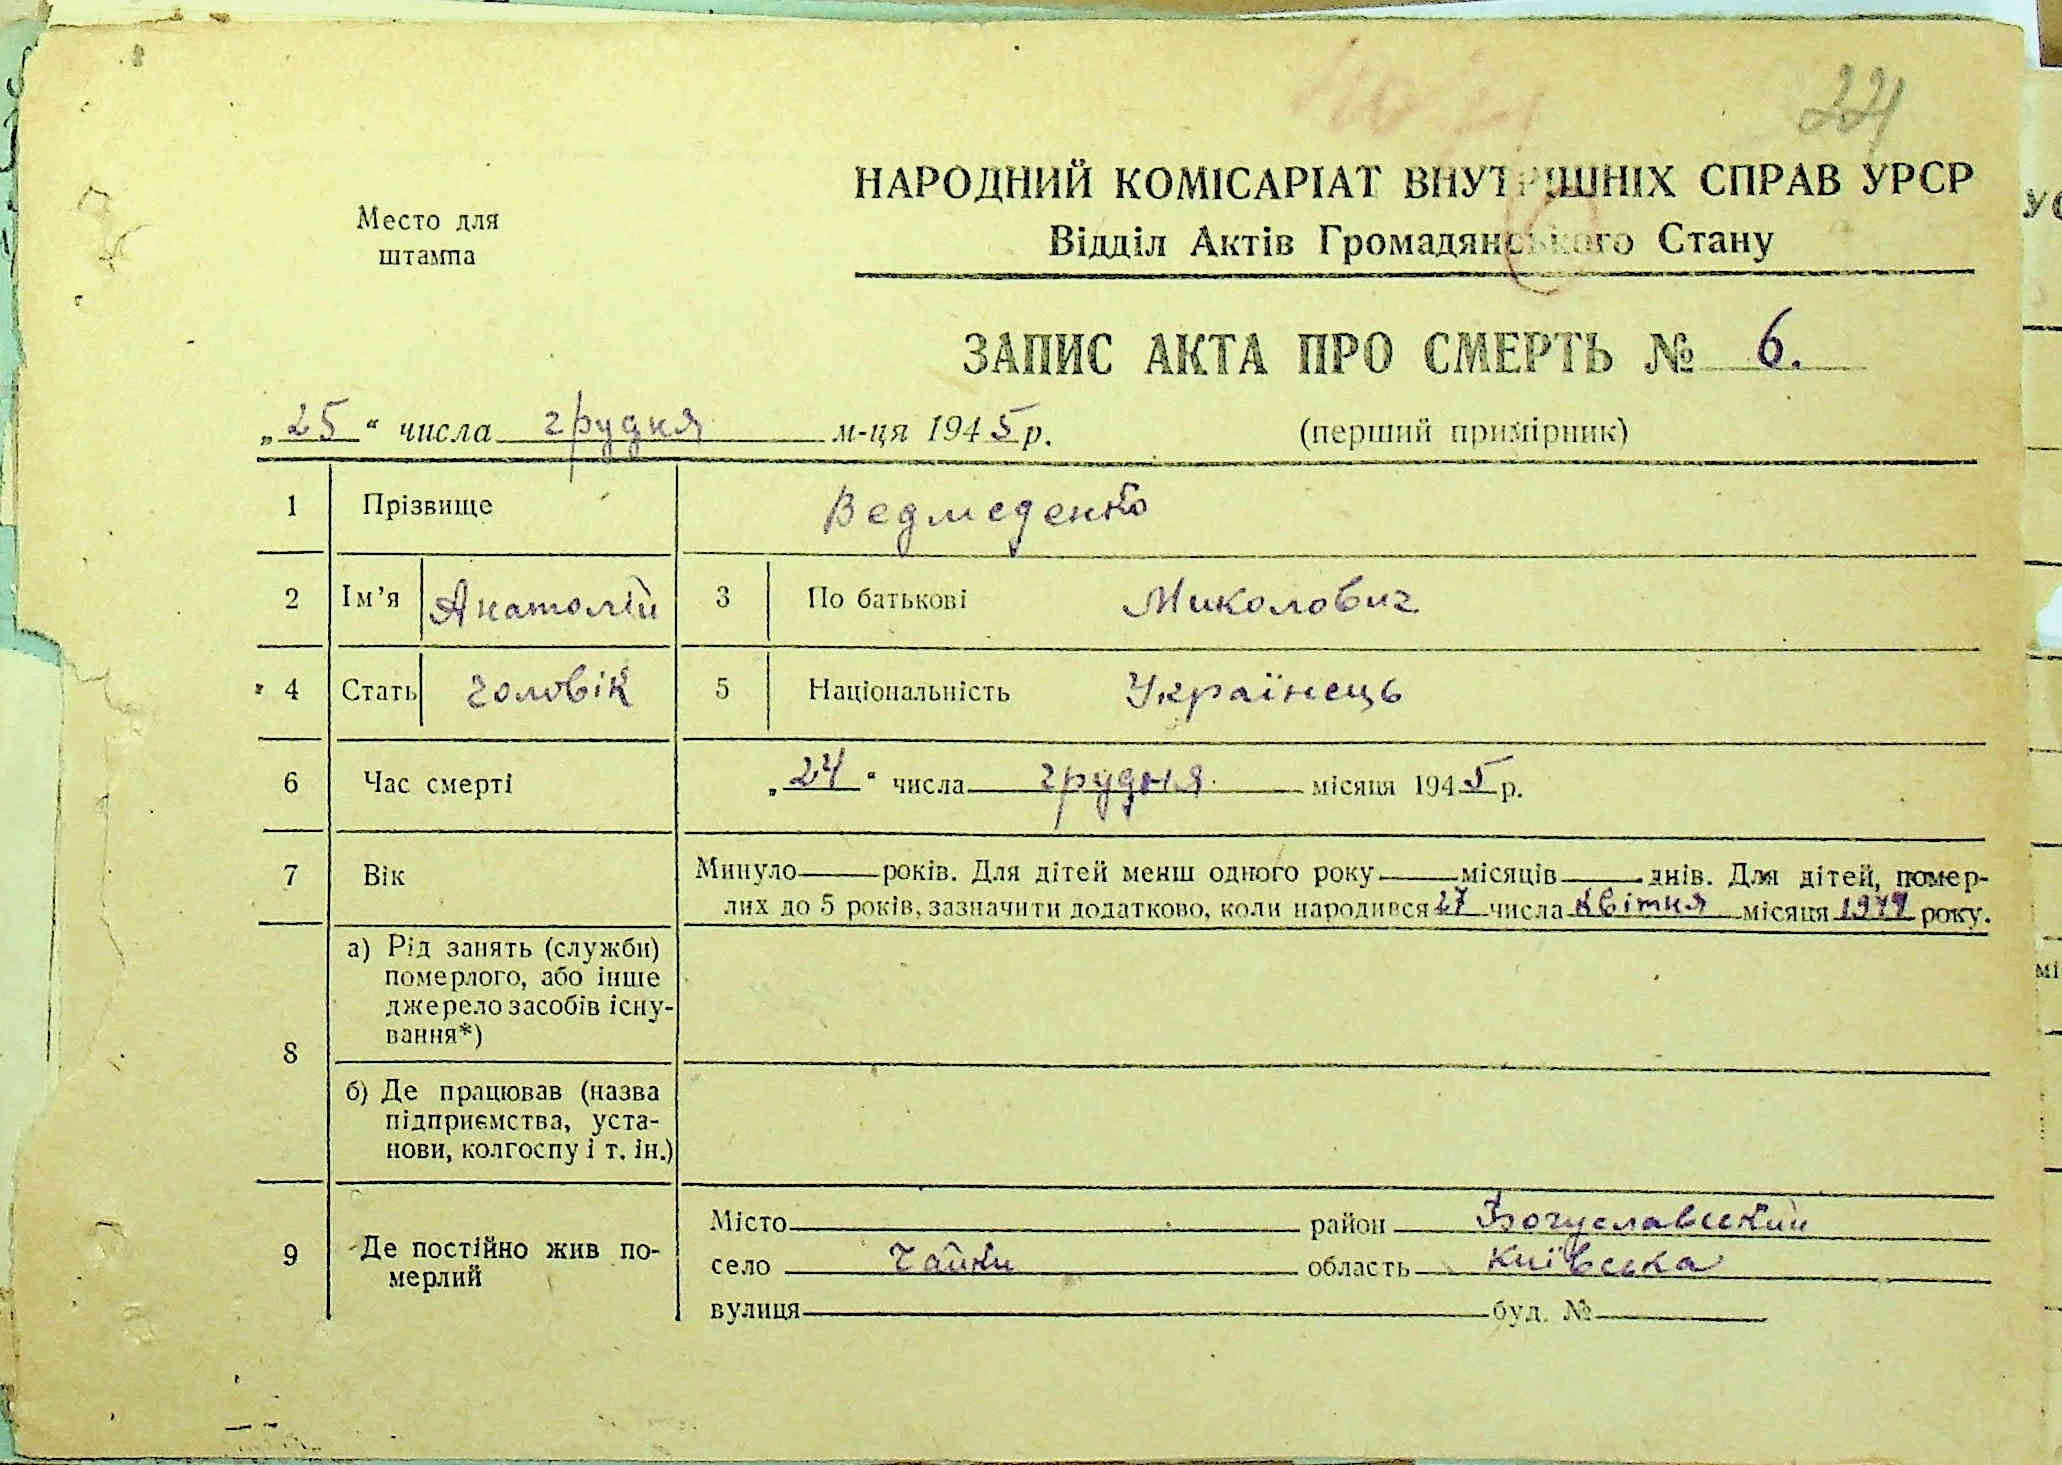 221
НАРОДНИЙ КОМІСАРІАТ ВНУТРІШНІХ СПРАВ УРСР
Место для
штампа
Відділ Актів Громадянського Стану
ЗАПИС АКТА ПРО СМЕРТЬ № 6.
„25“ числа грудня м-ця 1945 р.
(перший примірник)
1 Прізвище Ведмеденко
2 Ім’я Анатолій 3 По батькові Миколович
4 Стать чоловік 5 Національність Українець
6 Час смерті „24“ числа грудня місяця 1945 р.
7 Вік Минуло років. Для дітей менш одного року місяців днів. Для дітей, помер-
лих до 5 років, зазначити додатково, коли народився 27 числа квітня місяця року.
8 а) Рід занять (служби)
померлого, або інше
джерело засобів існу-
вання*)
б) Де працював (назва
підприємства, уста-
нови, колгоспу і т. ін.)
9 Де постійно жив по-
мерлий
Місто район Богуславський
село Чайки область Київська
вулиця буд. №